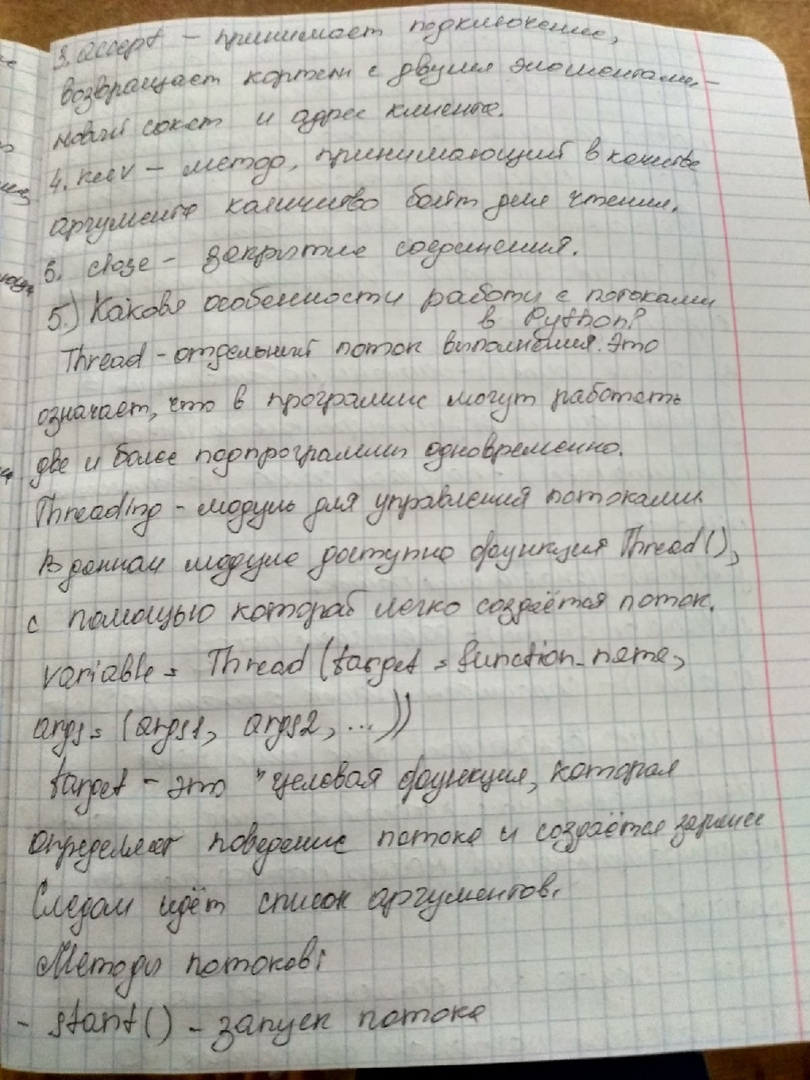 3. accept – принимает подключение,
возвращает кортеж с двумя элементами –
новый сокет и адрес клиента.
4. recv – метод, принимающий в качестве
аргумента количество байт для чтения.
5. close – закрытие соединения.
5.) Каковы особенности работы с потоками
в Python?
Thread – отдельный поток выполнения. Это
означает, что в программе могут работать
две и более подпрограммы одновременно.
Threading – модуль для управления потоками.
В данном модуле доступна функция Thread(),
с помощью которой легко создаётся поток.
variable = Thread (target = function_name,
args = (args1, args2, ...))
target – это "целовая функция, которая
определяет поведение потока и создаётся заранее
Следом идёт список аргументов.
Методы потоков:
- start() – запуск потока